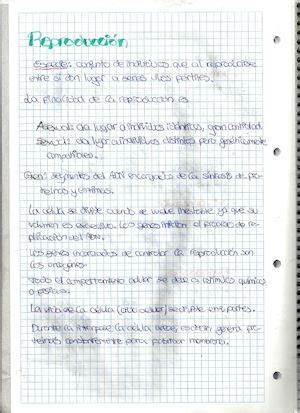 Reproducción
Especie: conjunto de individuos que al reproducirse
entre si dan lugar a seres vivos fértiles.
La finalidad de la reproducción es
Asexual: da lugar a individuos idénticos, gran cantidad.
Sexual: da lugar a individuos distintos pero genéticamente
compatibles.
Gen: segmentos del ADN encargado de la síntesis de pro-
teínas y enzimas.
La célula se divide cuando se vuelve inestable ya que su
volumen es excesivo. Los genes inician el proceso de re-
plicación del ADN.
Los genes encargados de controlar la reproducción son
los
Todo el comportamiento celular se debe a estímulos químicos
o físicos.
La vida de la célula (ciclo celular) se divide en partes.
Durante la interfase la célula crece, genera pro-
teínas constantemente para membrana.